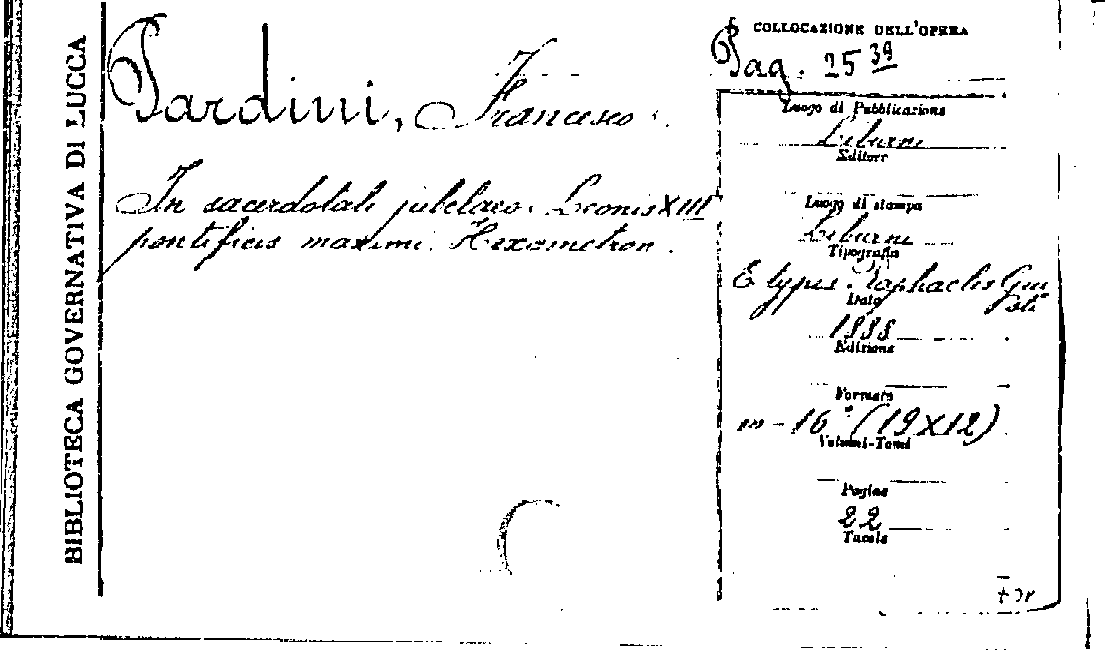 BIBLIOTECA GOVERNATIVA DI LUCCA
Pardini, Francesco.
In sacerdotali jubelaeo. Leonis XIII
pontificis maximi. Hexametron.
COLLOCAZIONE DELL'OPERA
Pag. 25 39
Luogo di Pubblicazione
Liburni
Editore
Luogo di stampa
Liburni
Tipografia
E typis Raphaelis Giu
sti
Data
1888
Edizione
Formato
in-16° (19×12)
Volumi-Tomi
Pagine
22
Tavole